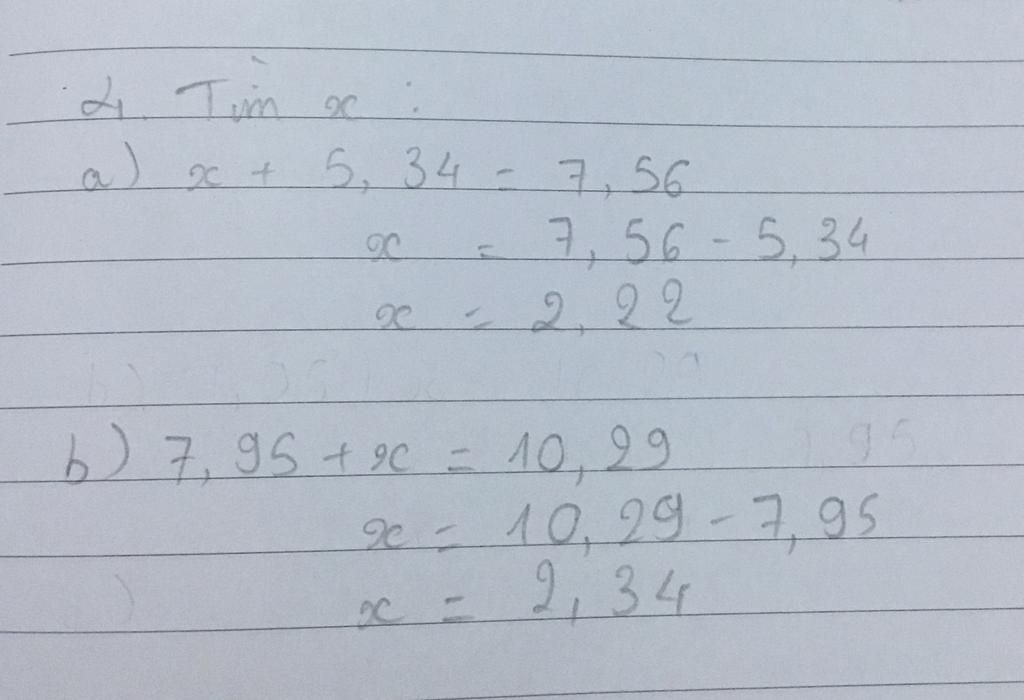 2. Tìm x :
a) x + 5,34 = 7,56
x = 7,56 - 5,34
x = 2,22
b) 7,95 + x = 10,29
x = 10,29 - 7,95
x = 2,34